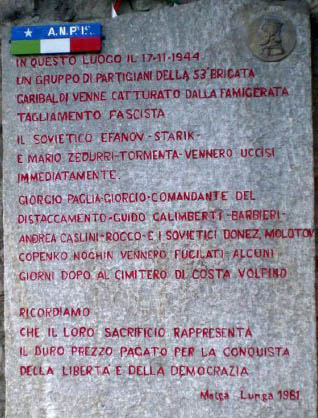 A.N.P.I.
IN QUESTO LUOGO IL 17-11-1944
UN GRUPPO DI PARTIGIANI DELLA 53ª BRIGATA
GARIBALDI VENNE CATTURATO DALLA FAMIGERATA
TAGLIAMENTO FASCISTA
IL SOVIETICO EFANOV-STARIK-
E MARIO ZEDURRI-TORMENTA-VENNERO UCCISI
IMMEDIATAMENTE.
GIORGIO PAGLIA-GIORGIO-COMANDANTE DEL
DISTACCAMENTO-GUIDO GALIMBERTI-BARBIERI-
ANDREA CASLINI-ROCCO-E I SOVIETICI DONEZ, MOLOTOV
COPENKO NOGHIN VENNERO FUCILATI ALCUNI
GIORNI DOPO AL CIMITERO DI COSTA VOLPINO
RICORDIAMO
CHE IL LORO SACRIFICIO RAPPRESENTA
IL DURO PREZZO PAGATO PER LA CONQUISTA
DELLA LIBERTÀ E DELLA DEMOCRAZIA
Malga Lunga 1981